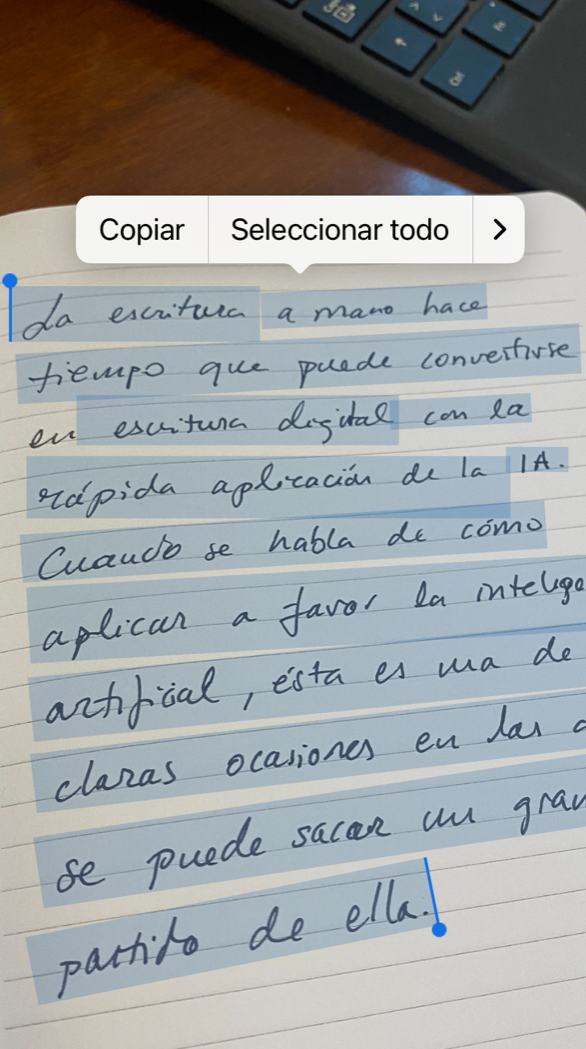 Copiar Seleccionar todo
La escritura a mano hace
tiempo que puede convertirse
en escritura digital con la
rápida aplicación de la IA.
Cuando se habla de cómo
aplicar a favor la intelige
artificial, ésta es una de
claras ocasiones en las
se puede sacar un gran
partido de ella.